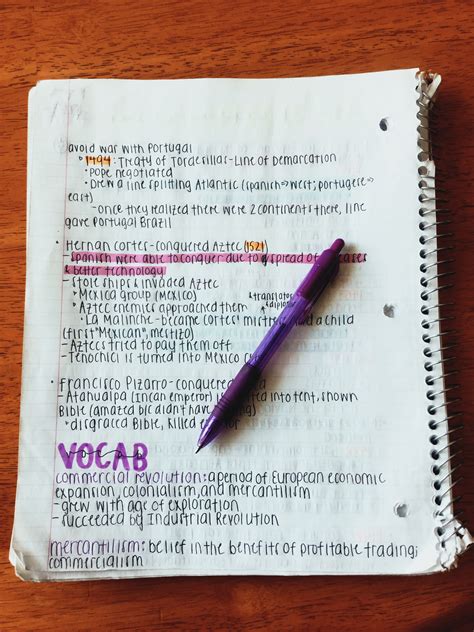 avoid war with Portugal
1494: Treaty of Tordesillas-Line of Demarcation
• Pope negotiated
• Drew a line splitting Atlantic (Spanish → west; portugese →
east)
- once they realized there were 2 continents there, line
gave Portugal Brazil
• Hernan Cortes-conquered Aztec (1521)
- Spanish were able to conquer due to spread of
& better technology
- stole ships & invaded Aztec
Mexica group (Mexico)
Aztec enemies approached them
translator
• La Malinche-became Cortes' had a child
(first "Mexican", mestizo)
- Aztecs tried to pay them off
- is turned into Mexico
• Francisco Pizarro-conquered
- Atahualpa (Incan emperor) is into tent, shown
Bible (amazed b/c didn't have
disgraced Bible, killed
VOCAB
commercial revolution: a period of European economic
expansion, colonialism, and mercantilism
- grew with age of exploration
- succeeded by Industrial Revolution
mercantilism: belief in the benefits of profitable trading;
commercialism